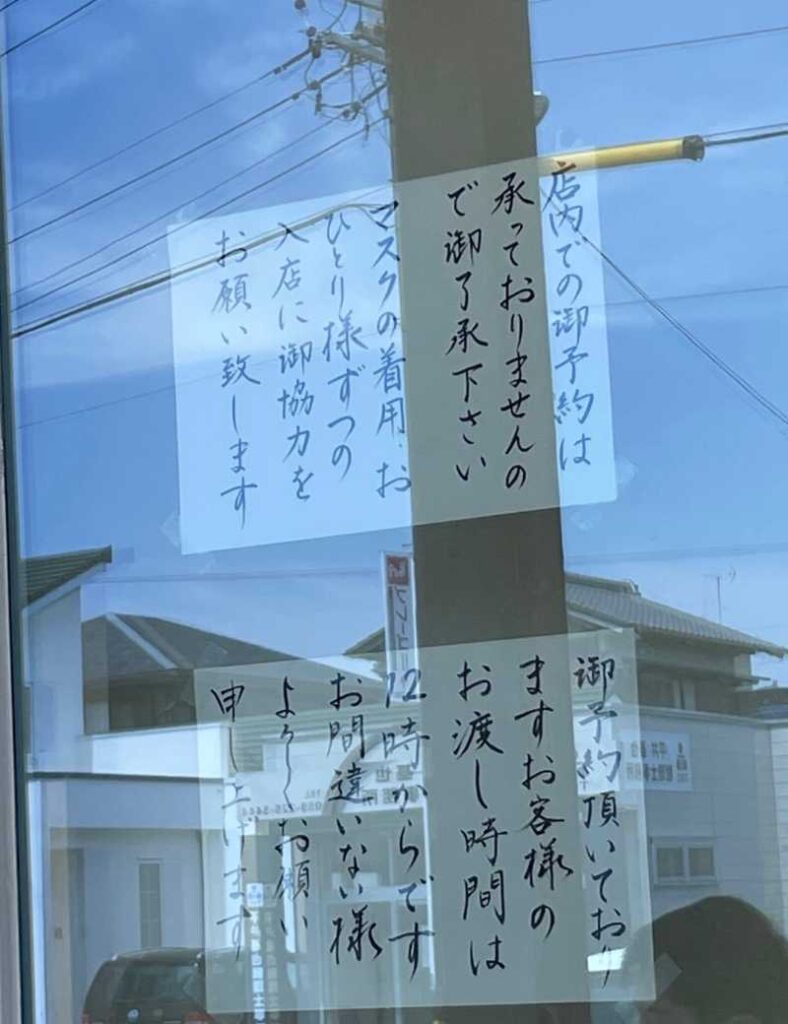 店内での御予約は
承っておりませんの
で御了承下さい
マスクの着用・お
ひとり様ずつの
入店に御協力を
お願い致します
御予約頂いており
ますお客様の
お渡し時間は
12時からです
お間違いない様
よろしくお願い
申し上げます